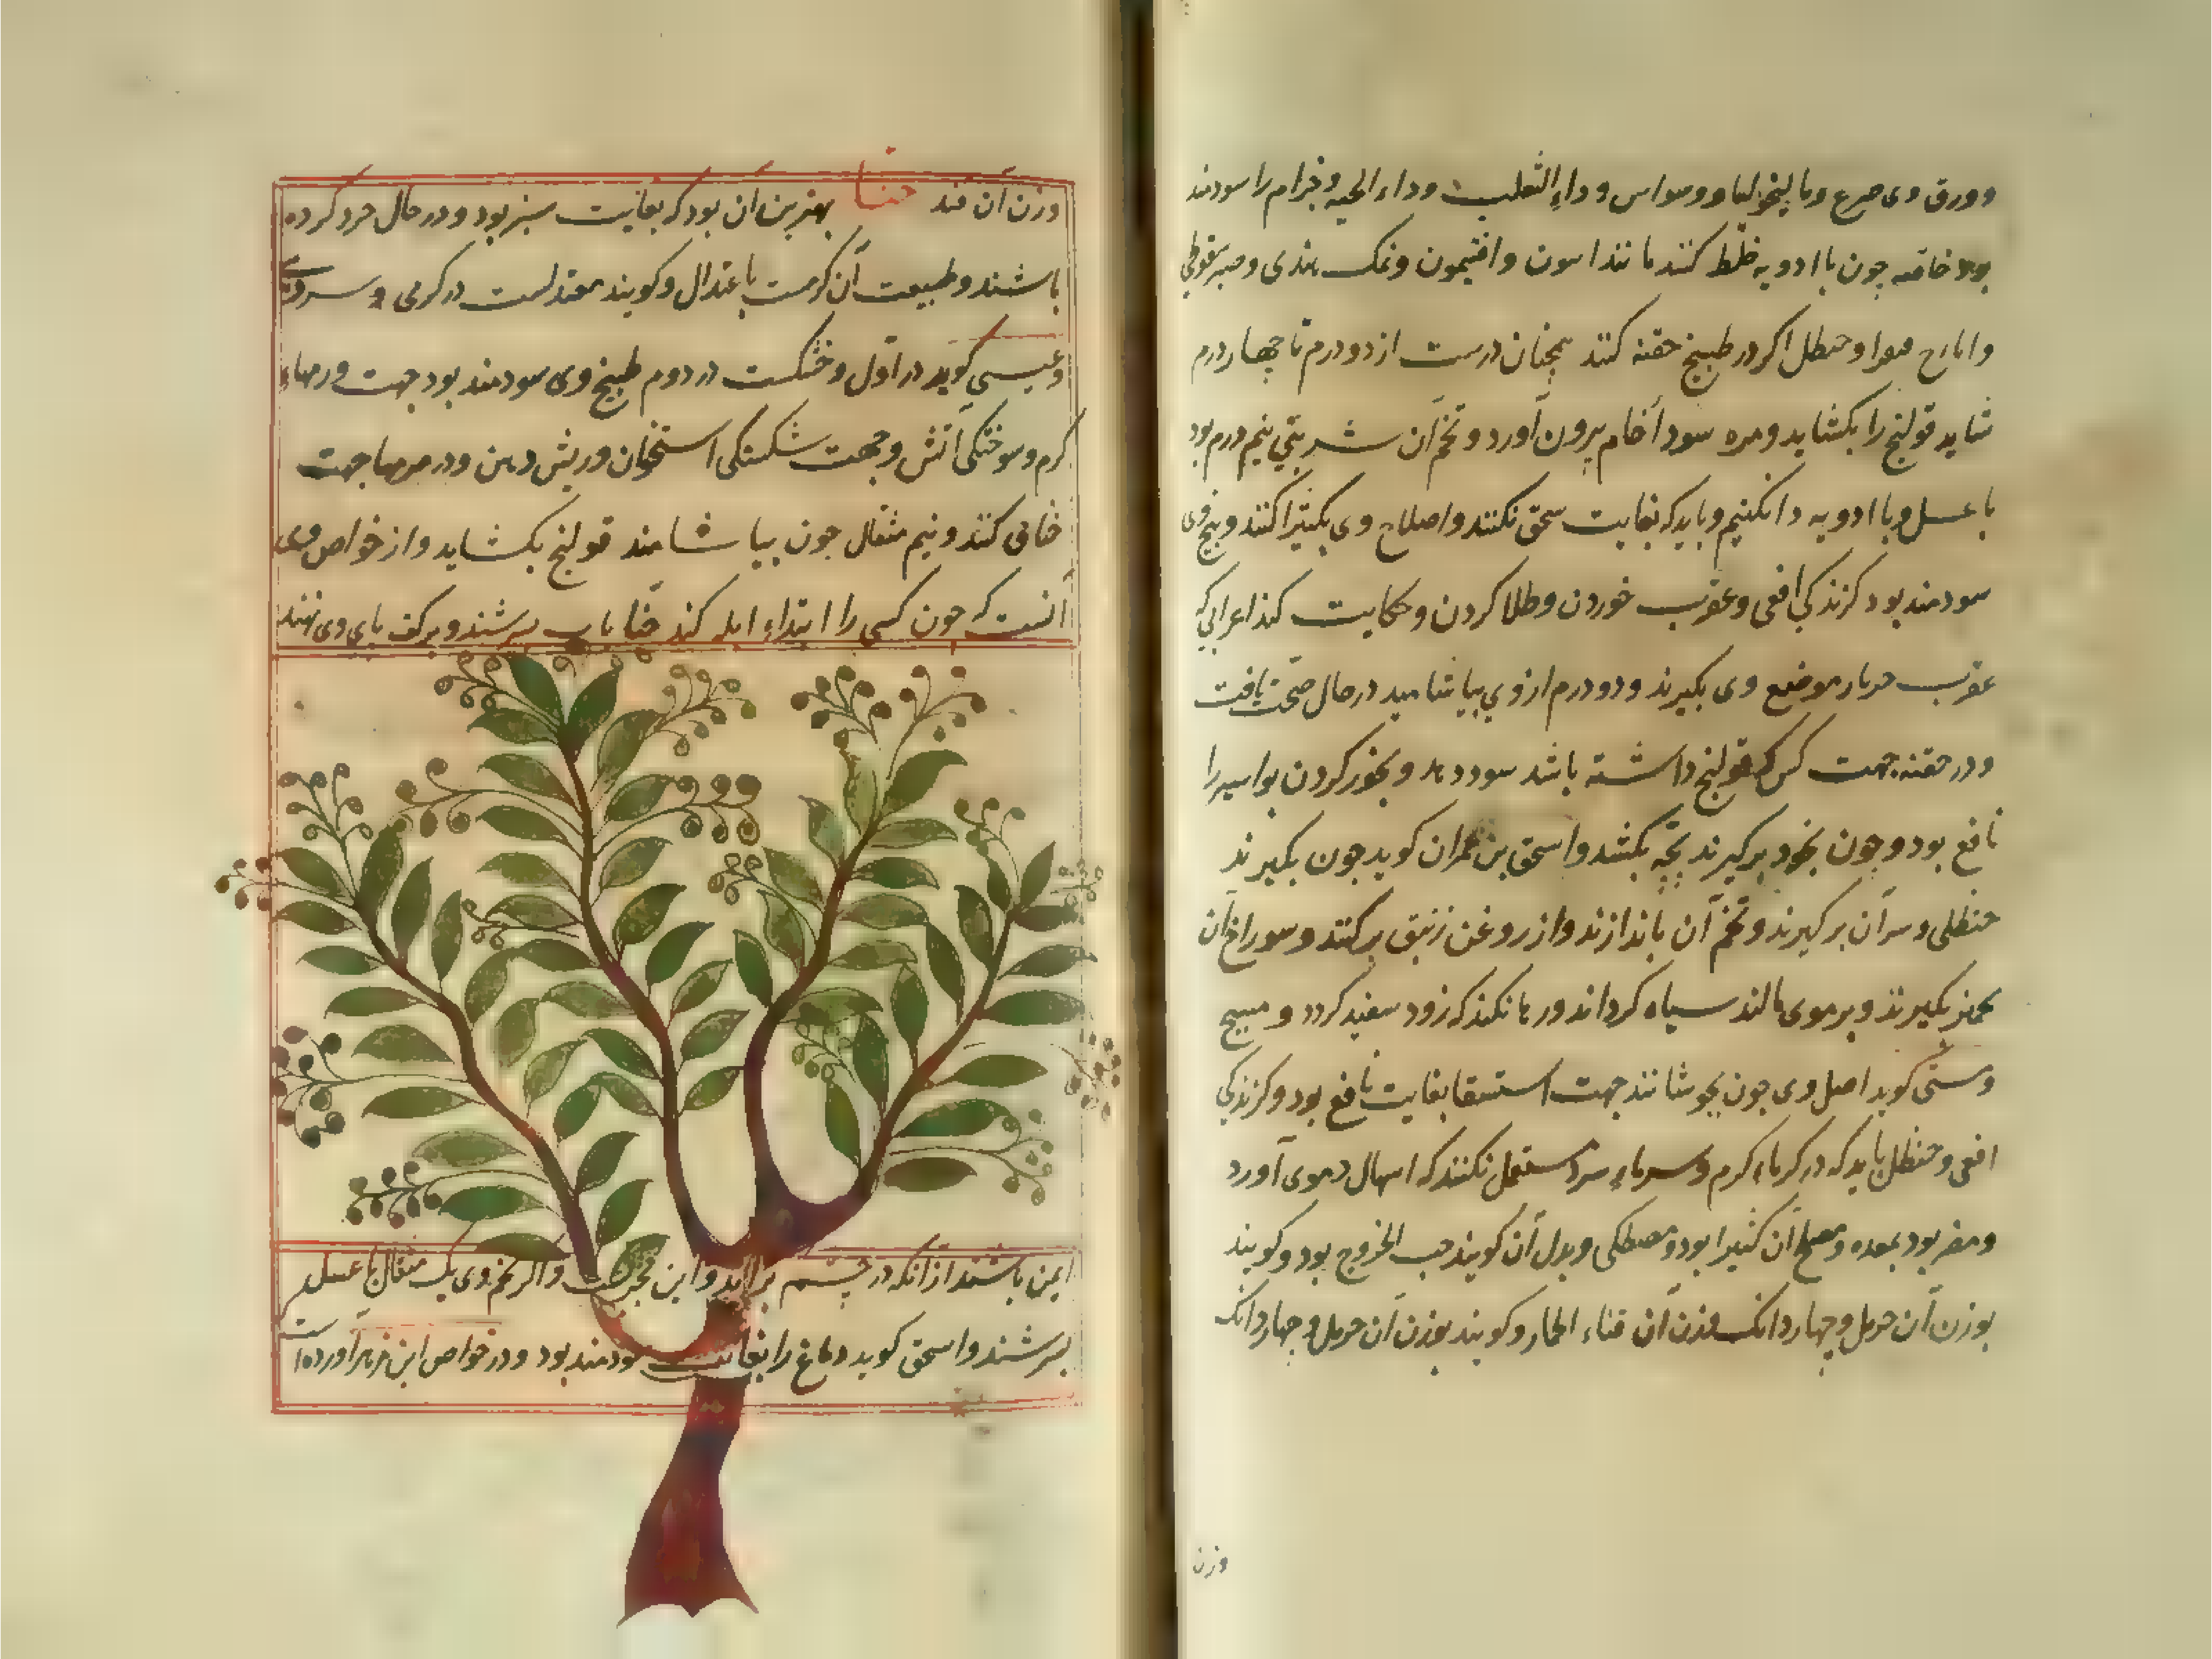 وورق وی صرع ومالیخولیا ووسواس وداء الثعلب وداء الحیه وجذام را سودمند
بود خاصه چون با ادویه خلط کنند مانند اسون وافتیمون ونمک هندی وصبر سقوطری
وایارج فیقرا وحنظل اکر در طبیخ حقنه کنند همچنان درست از دو درم تا چهار درم
شاید قولنج را بکشاید ومره سودا خام بیرون آورد وتخم آن شربتی نیم درم بود
با عسل وبا ادویه دانکنیم وباید که بغایت سحق نکنند واصلاح وی بکثیرا کنند وبیخ وی
سودمند بود کزندکی افعی وعقرب خوردن وطلا کردن وحکایت کند اعرابی که
عقرب چهار موضع وی بکیرند ودو درم از وی بیاشامید در حال صحت یافت
ودر حقنه جهت کسی که قولنج داشته باشد سود دهد وبخور کردن بواسیر را
نافع بود وچون بخود برکیرند بچه بکشد واسحق بن عمران کوید چون بکیرند
حنظلی وسر آن برکیرند وتخم آن باندازند واز روغن زنبق پر کنند وسوراخ آن
بخمیر بکیرند وبر موی مالند سیاه کرداند ورها نکند که زود سفید کردد ومسیح
دمشقی کوید اصل وی چون بجوشانند جهت استسقا بغایت نافع بود وکزندکی
افعی وحنظل باید که در کرماء کرم وسرماء سرد مستعمل نکنند که اسهال دموی آورد
ومضر بود بمعده ومصلح آن کثیرا بود ومصطکی وبدل آن کویند حب الخروع بود وکویند
بوزن آن حرمل وچهار دانک وزن آن قثاء الحمار وکویند بوزن آن حرمل وچهار دانک
وزن
وزن آن قند حنا بهترین آن بود که بغایت سبز بود ودر حال خرد کرده
باشند وطبیعت آن کرمست باعتدال وکویند معتدلست در کرمی وسردی
وعیسی کوید در اول وخشکست در دوم طبیخ وی سودمند بود جهت ورمهاء
کرم وسوختکی آتش وجهت شکستکی استخوان وریش دهن ودر مرهمها جهت
خامی کنند ونیم مثقال چون بیاشامند قولنج بکشاید واز خواص وی
آنست که چون کسی را ابتداء ابله کند حنا باب بسرشند وبر کف پای وی نهند
ایمن باشند از آنکه در چشم براید واین مجربست واکر تخم وی یک مثقال با عسل
بسرشند واسحق کوید دماغ را بغایت سودمند بود ودر خواص ابن زهر آورده است